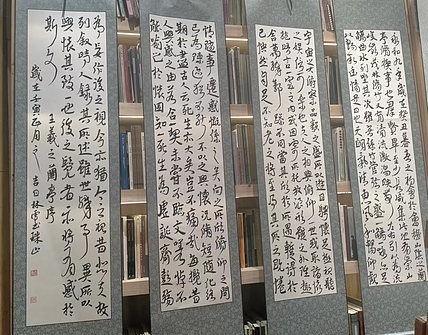 永和九年歲在癸丑暮春之初會於會稽山陰之蘭
亭修禊事也群賢畢至少長咸集此地有崇山
峻嶺茂林修竹又有清流激湍映帶左右引以為流
觴曲水列坐其次雖無絲竹管弦之盛一觴一詠亦足
以暢敘幽情是日也天朗氣清惠風和暢仰觀
宇宙之大俯察品類之盛所以遊目騁懷足以極視
聽之娛信可樂也夫人之相與俯仰一世或取諸懷
抱悟言一室之內或因寄所託放浪形骸之外雖趣
舍萬殊靜躁不同當其欣於所遇暫得於
己怏然自足不知老之將至及其所之既惓
情隨事遷感慨係之矣向之所欣俯仰之間
已為陳迹猶不能不以之興懷況修短隨化終
期於盡古人云死生亦大矣豈不痛哉每覽昔
人興感之由若合一契未嘗不臨文嗟悼不
能喻之於懷固知一死生為虛誕齊彭殤
為妄作後之視今亦猶今之視昔悲夫故
列敘時人錄其所述雖世殊事異所以
興懷其致一也後之覽者亦將有感於
斯文
王羲之蘭亭序
歲在壬寅正月之吉日林